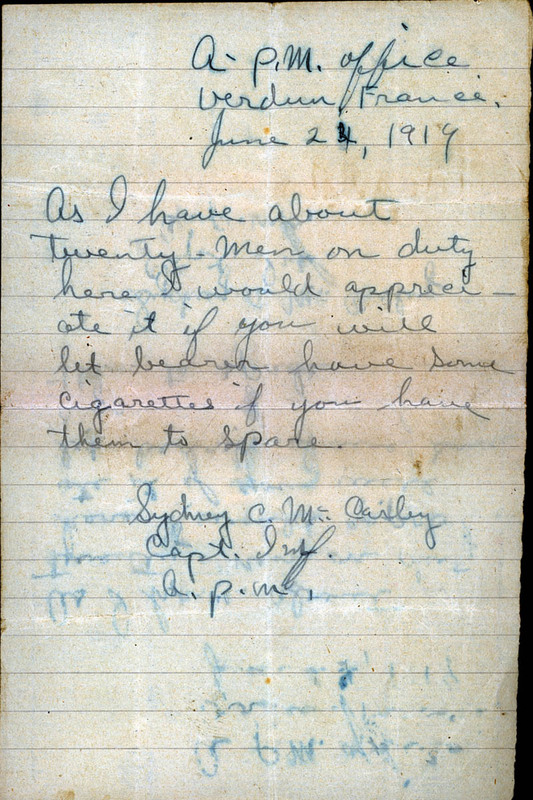 A. P.M. office
Verdun, France.
June 24, 1919
As I have about
twenty-men on duty
here I would appreci-
ate it if you will
let bearer have some
cigarettes if you have
them to spare.
Sydney C. Mc
Capt. Inf.
A. P. M.